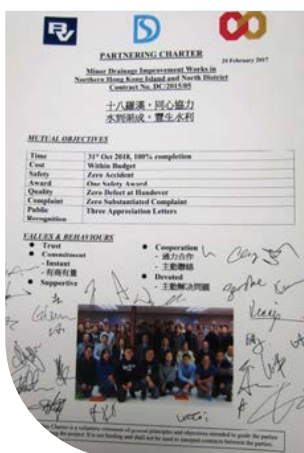 PARTNERING CHARTER
24 February 2017
Minor Drainage Improvement Works in
Northern Hong Kong Island and North District
Contract No. DC/2015/05
十八羅漢，同心協力
水到渠成，豐生水利
MUTUAL OBJECTIVES
Time 31st Oct 2018, 100% completion
Cost Within Budget
Safety Zero Accident
Award One Safety Award
Quality Zero Defect at Handover
Complaint Zero Substantiated Complaint
Public Recognition Three Appreciation Letters
VALUES & BEHAVIOURS
● Trust
● Commitment
- Instant
- 有商有量
● Supportive
● Cooperation
- 通力合作
- 主動聯絡
● Devoted
- 主動解決問題
Charter is a voluntary statement of general principles and objectives intended to guide the parties
the project. It is not binding and shall not be used to interpret contracts between the parties.